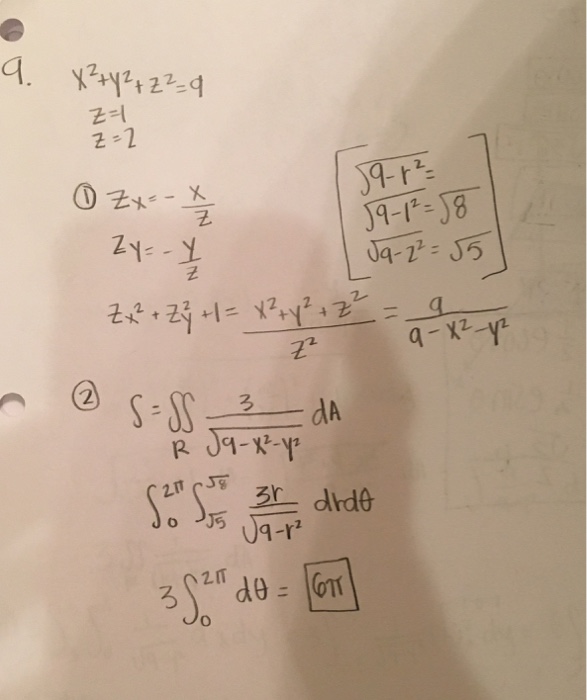 9. x²+y²+z²=9
z=1
z=2
① Zx=-x/z
√9-r²=
√9-1²=√8
Zy=-y/z
√9-2²=√5
Zx²+Zy²+1= x²+y²+z²/z² = 9/9-x²-y²
② S=∬R 3/√9-x²-y² dA
∫₀^2π ∫√5^√8 3r/√9-r² drdθ
3∫₀^2π dθ = 6π